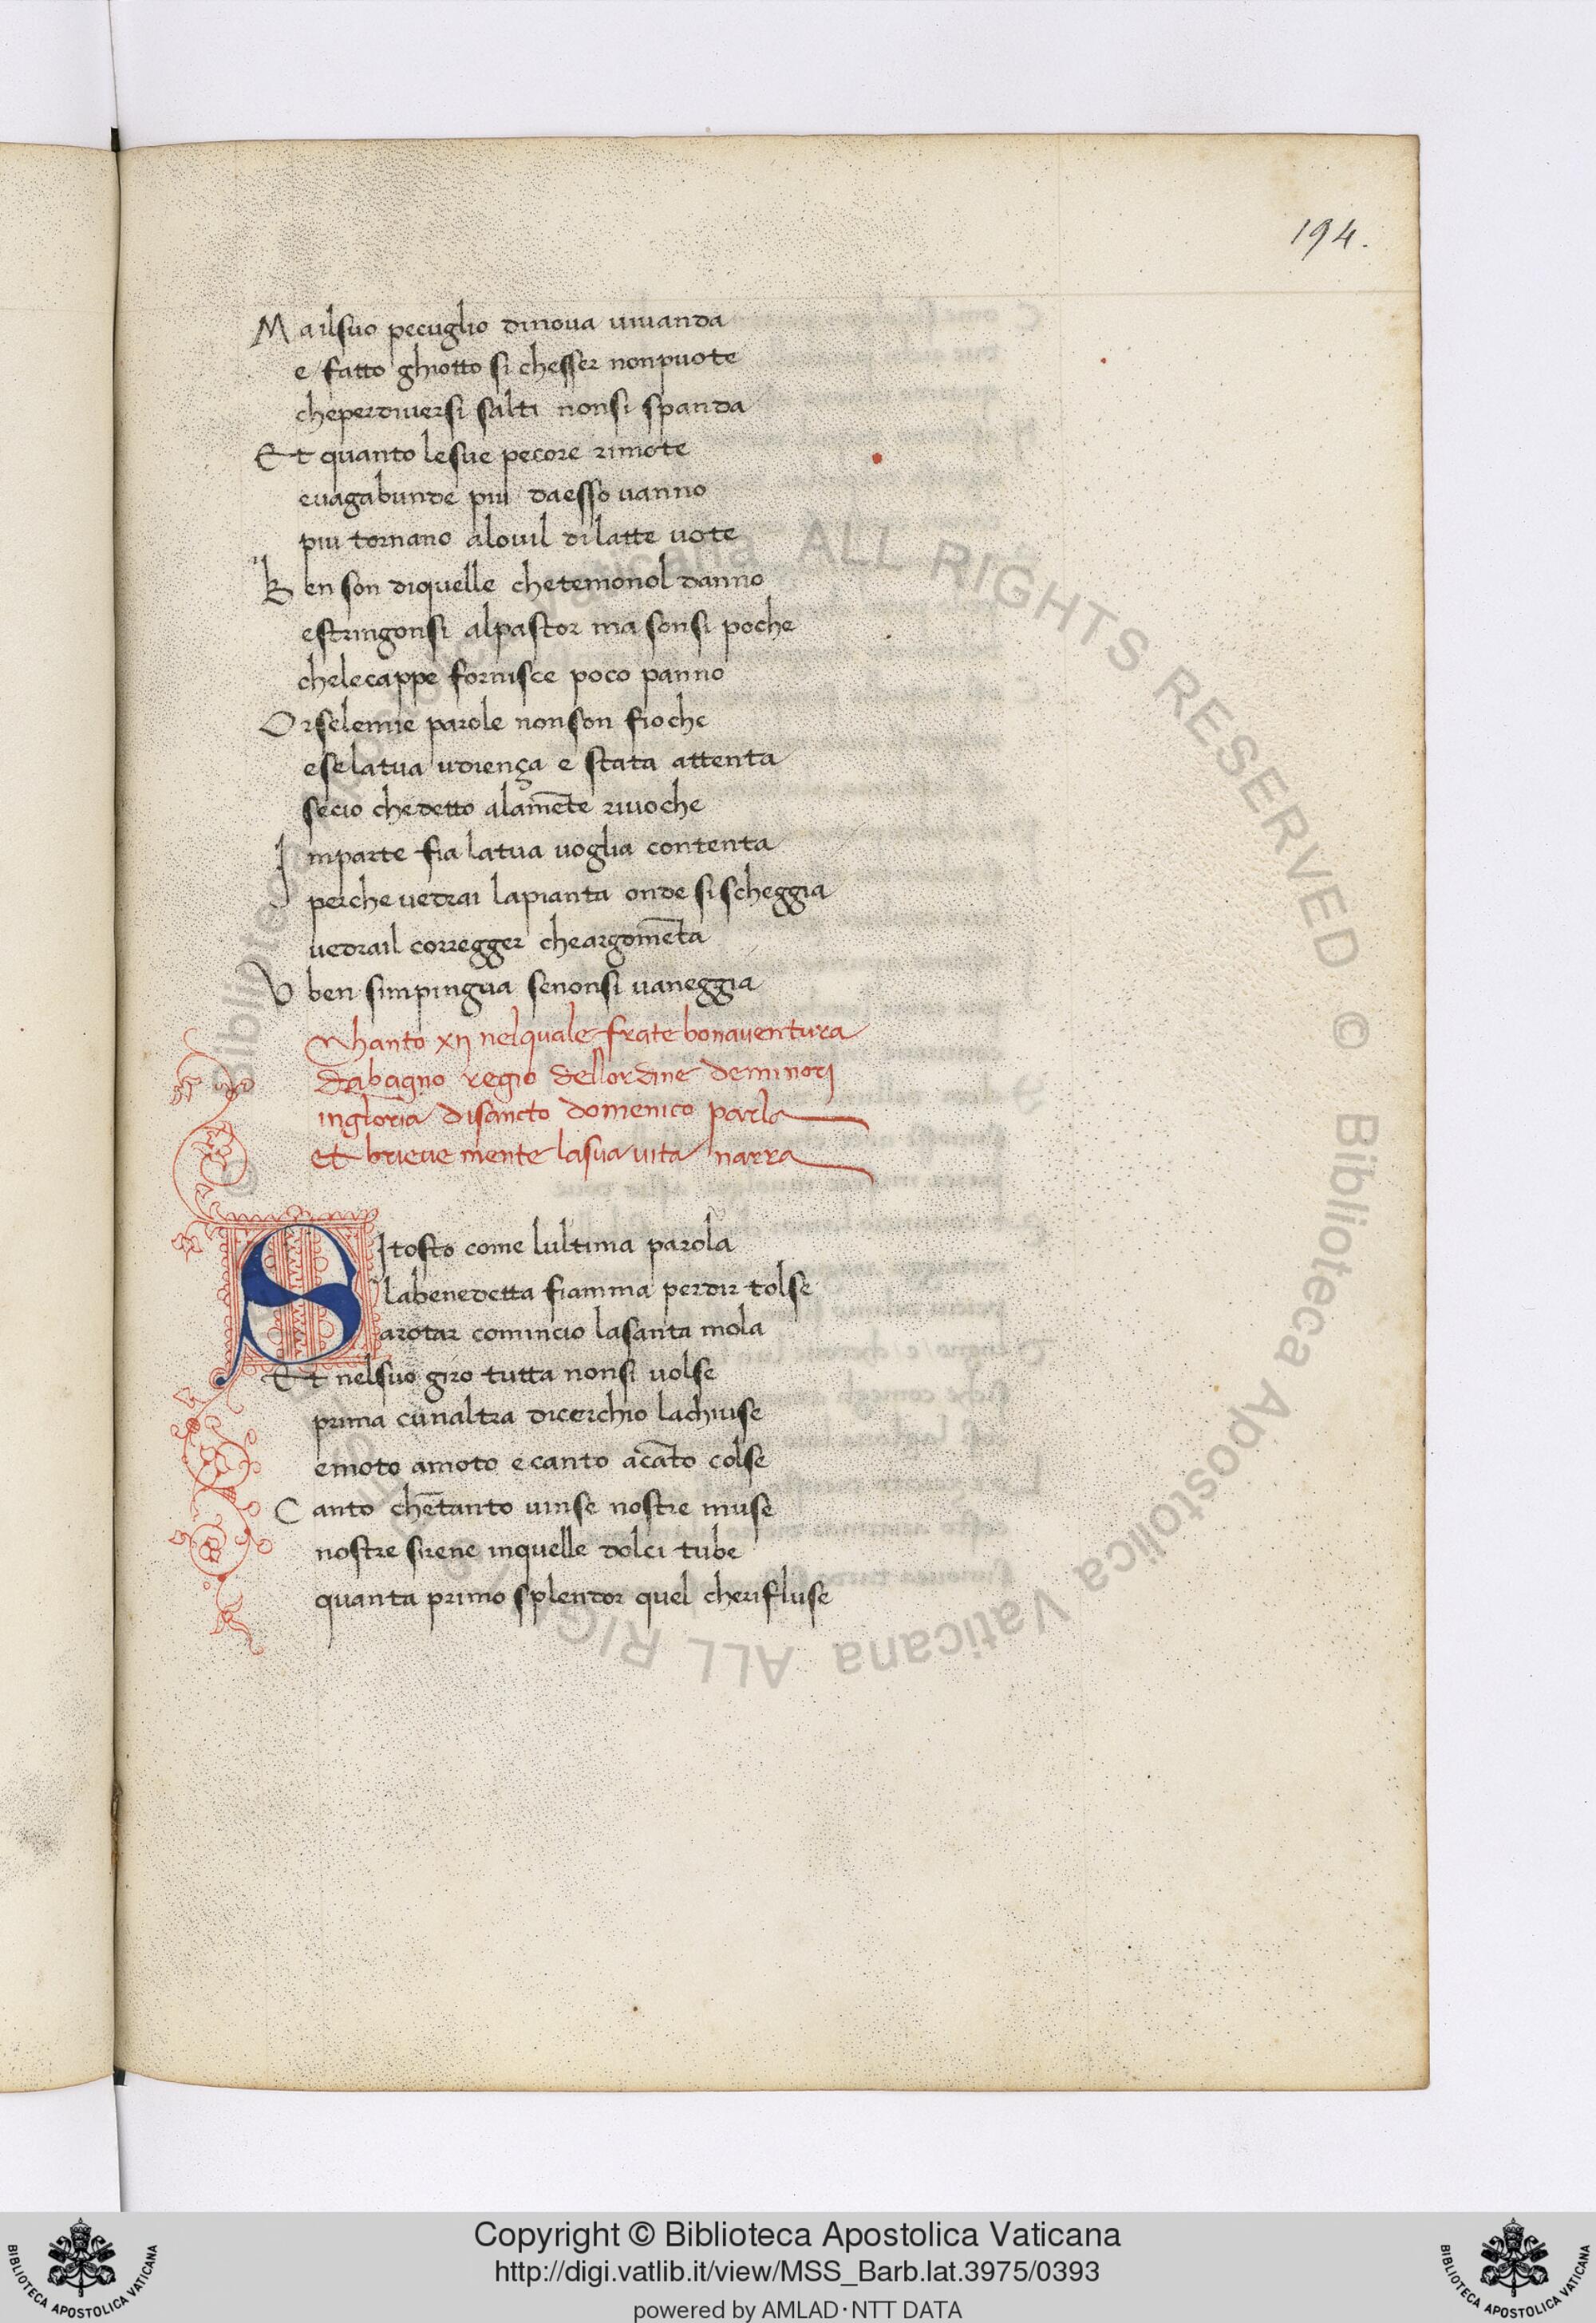 194.
Ma ilsuo pecuglio dinova vivanda
e fatto ghiotto si chesser nonpuote
cheperdiversi salti nonsi spanda
Et quanto lesue pecore rimote
evagabunde piu daesso vanno
piu tornano alovil dilatte vote
Ben son diquelle chetemonol danno
estringonsi alpastor ma sonsi poche
chelecappe fornisce poco panno
Orselemie parole nonson fioche
eselatua udiença e stata attenta
secio chedetto alamēte rivoche
Inparte fia latua voglia contenta
perche vedrai lapianta onde si scheggia
vedrail corregger cheargomēta
U ben simpingua senonsi vaneggia
Chanto xij nelquale frate bonaventura
dabagno regio dellordine deminorj
ingloria disancto domenico parla
et brieve mente lasua vita narra
SI tosto come lultima parola
labenedetta fiamma perdir tolse
arotar comincio lasanta mola
Et nelsuo giro tutta nonsi volse
prima cunaltra dicerchio lachiuse
emoto amoto ecanto acāto colse
Canto chētanto vinse nostre muse
nostre sirene inquelle dolci tube
quanta primo splendor quel cherifluse
© Biblioteca Apostolica Vaticana ALL RIGHTS RESERVED © Biblioteca Apostolica Vaticana ALL RIGHTS
Copyright © Biblioteca Apostolica Vaticana
http://digi.vatlib.it/view/MSS_Barb.lat.3975/0393
powered by AMLAD·NTT DATA
BIBLIOTECA APOSTOLICA VATICANA
BIBLIOTECA APOSTOLICA VATICANA